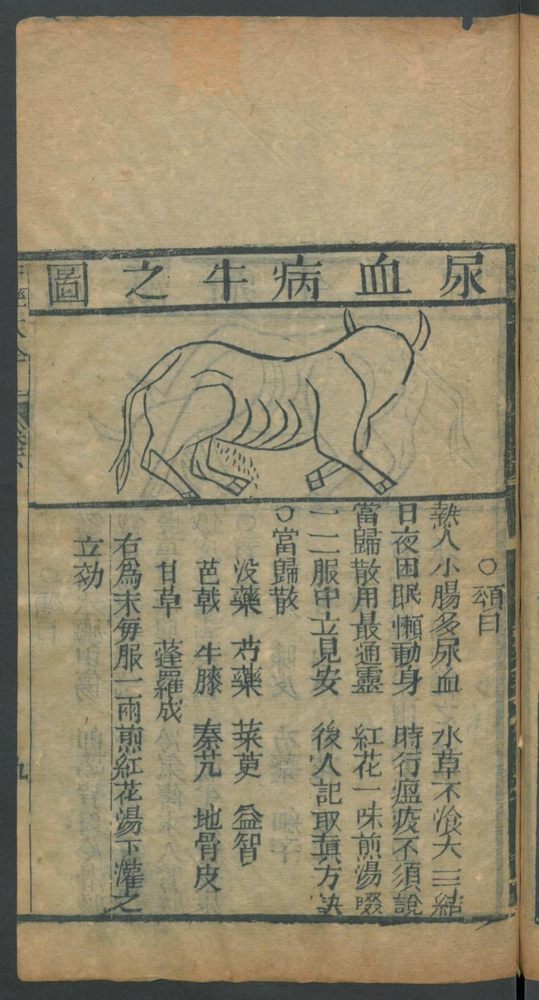 尿血病牛之圖
○頌曰
熱入小腸多尿血 水草不飡大三結
日夜困眠懶動身 時行瘟疫不須說
當歸散用最通靈 紅花一味煎湯啜
一二服中立見安 後人記取真方訣
○當歸散
没藥 芍藥 茱萸 益智
芭戟 牛膝 秦艽 地骨皮
甘草 蓬羅成
右為末每服一兩煎紅花湯下灌之
立効
九